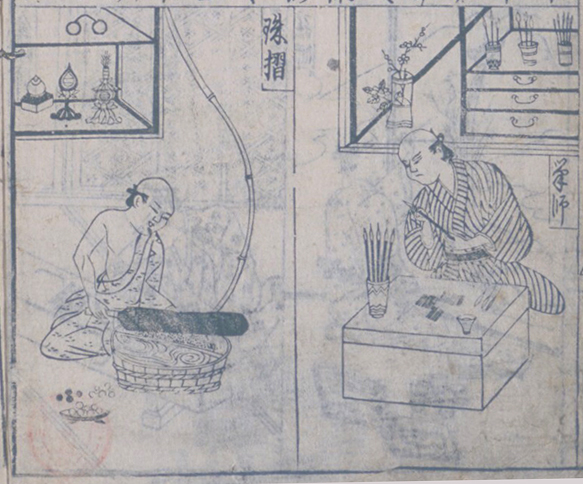 筆師
珠摺